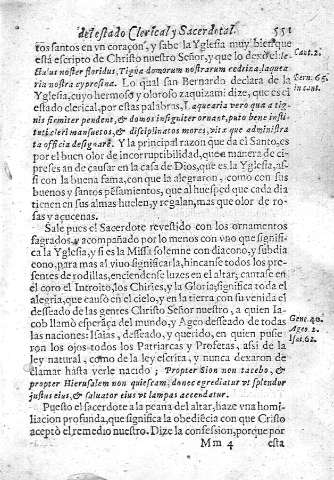 del estado Clerical y Sacerdotal. 551
tos santos en vn coraçon, y sabe la Yglesia muy bien que
està escripto de Christo nuestro Señor, y que lo dexo el le-
ctulus noster floridus, Tigna domorum nostrarum cedrina, laquea-
ria nostra cypresina. Lo qual san Bernardo declara de la
Yglesia, cuyo hermoso y oloroso zaquizami dize, que es el
estado clerical, por estas palabras, Laquearia vero qua a tig-
nis firmiter pendent, & domos insigniter ornant, puto bene insti-
tuti cleri mansuetos, & disciplinatos mores, vita que administra
ta officia designare. Y la principal razon que da el Santo, es
por el buen olor de incorruptibilidad, que a manera de ci-
preses an de causar en la casa de Dios, que es la Yglesia, assi
con la buena fama, con que la alegraron, como con sus
buenos y santos pẽsamientos, que al huesped que cada dia
tienen en sus almas huelen, y regalan, mas que olor de ro-
sas y açucenas.
Sale pues el Sacerdote reuestido con los ornamentos
sagrados, y acompañado por lo menos con vno que signifi-
ca la Yglesia, y si es la Missa solemne con diacono, y subdia
cono, para mas al viuo significarla, hincanse todos los pre-
sentes de rodillas, enciendense luzes en el altar, cantase en
el coro el Introito, los Chiries, y la Gloria; significa toda el
alegria, que causò en el cielo, y en la tierra con su venida el
desseado de las gentes Christo Señor nuestro, a quien Ia-
cob llamò esperãça del mundo, y Ageo desseado de todas
las naciones: Isaias, desseado, y querido, en quien pusie
ron los ojos todos los Patriarcas y Profetas, assi de la
ley natural, como de la ley escrita, y nunca dexaron de
clamar hasta verle nacido; Propter Sion non tacebo, &
propter Hierusalem non quiescam, donec egrediatur vt splendor
justus eius, & saluator eius vt lampas accendatur.
Puesto el sacerdote a la peana del altar, haze vna homi-
lliacion profunda, que significa la obediẽcia con que Cristo
aceptò el remedio nuestro. Dize la confession, porque por
Mm 4 esta
Cant. 2.
Serm. 65.
in cant.
Gene. 49.
Ageo. 2.
Isai. 62.